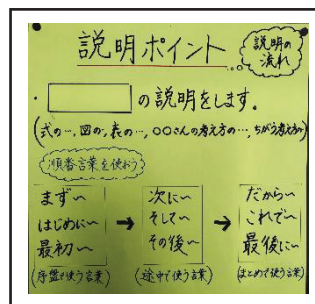 説明ポイント
説明の流れ
の説明をします。
(式の…、図の、表の…、〇〇さんの考え方の…、ちがう考え方)
順番言葉を使おう
まず〜
はじめに〜
最初〜
(序盤で使う言葉)
→
次に〜
そして〜
その後〜
(途中で使う言葉)
→
だから〜
これで〜
最後に〜
(まとめで使う言葉)